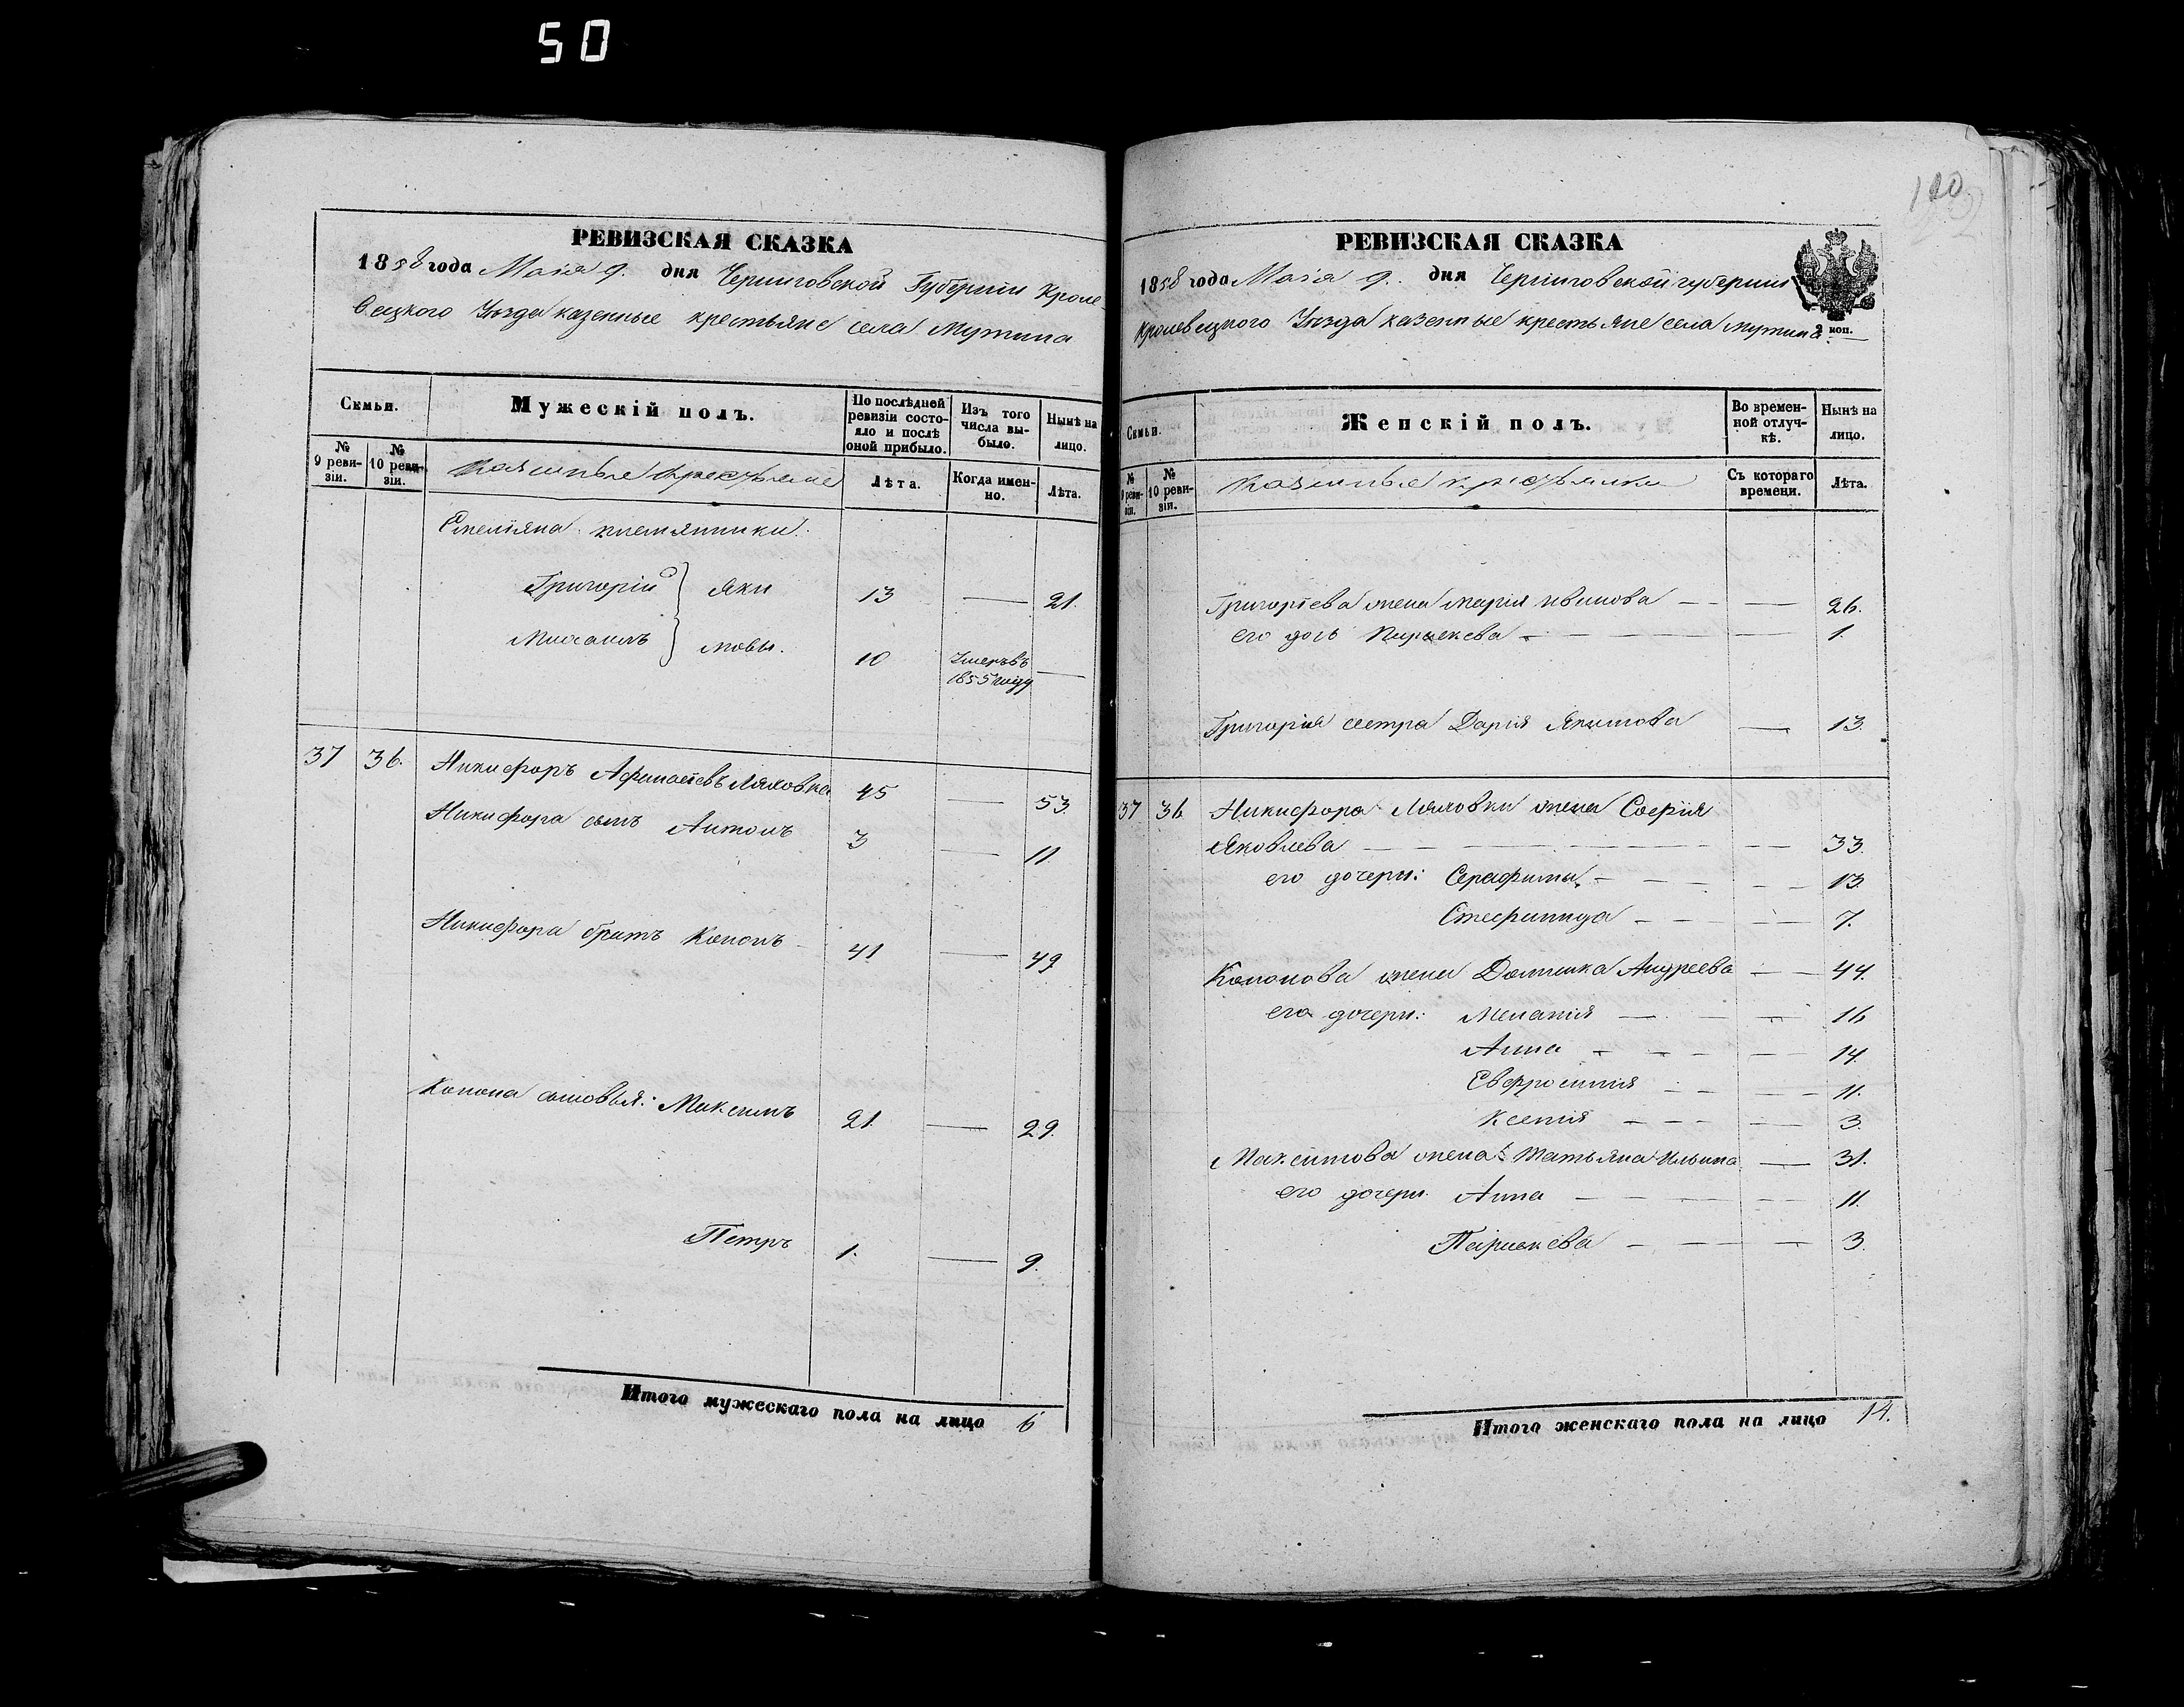 50
РЕВИЗСКАЯ СКАЗКА
1858 года Маія 9. дня Черниговской Губерніи Кроле
вецкого Уезда казенные крестьяне села Мутина
Семьи.
Мужескій полъ.
По послѣдней ревизіи состояло и послѣ оной прибыло.
Изъ того числа выбыло.
Нынѣ на лицо.
№ 9 ревизіи.
№ 10 ревизіи.
Казенные крестьяне
Лѣта.
Когда именно.
Лѣта.
Емеліяна племянники:
Григорій } Яки 13 — 21.
Михаилъ } мовы. 10 Умеръ въ
1855 году —
37 36. Никифоръ Афанасіевъ Ляховка 45 — 53.
Никифора сынъ Антонъ 3 — 11
Никифора братъ Кононъ 41 — 49
Конона сыновья: Максимъ 21. — 29.
Петръ 1. — 9.
Итого мужескаго пола на лицо 6
190
РЕВИЗСКАЯ СКАЗКА
1858 года Маія 9. дня Черниговской губерніи
Кролевецкого Уезда казенные крестьяне села Мутина.
2 коп.
Семьи.
Женскій полъ.
Во временной отлучкѣ.
Нынѣ на лицо.
№ 9 ревизіи.
№ 10 ревизіи.
Казенные крестьянки
Съ котораго времени.
Лѣта.
Григорьева жена Марія Иванова — — 26.
его дочь Параскева — — 1.
Григорія сестра Дарія Якимова — 13.
37 36 Никифора Ляховки жена Софія
Яковлева — — 33.
его дочери: Серафима — — 13
Стефанида — — 7.
Кононова жена Домникa Андреева — — 44.
его дочери: Меланія — — 16
Анна — — 14.
Евфросинія — — 11.
Ксенія — — 3.
Максимова жена Татьяна Ильина — 31.
его дочери Анна — — 11.
Параскева — — 3.
Итого женскаго пола на лицо 14.